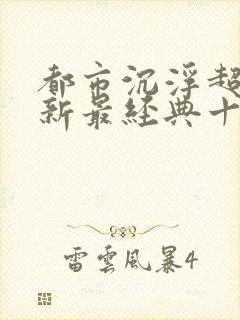 都市沉浮超
新最经典十
雷雲風暴4